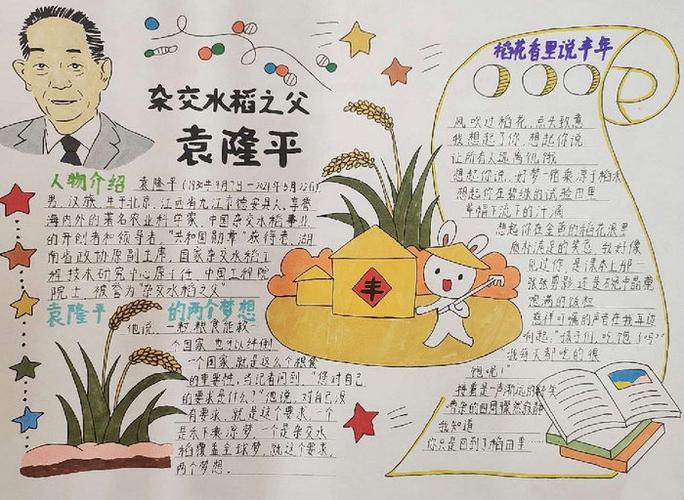 杂交水稻之父
袁隆平
人物介绍 袁隆平(1930年9月7日—2021年5月22日)
男,汉族,生于北京,江西省九江市德安县人,享誉
海内外的著名农业科学家,中国杂交水稻事业
的开创者和领导者,“共和国勋章”获得者,湖
南省政协原副主席,国家杂交水稻工
程技术研究中心原主任,中国工程院
院士,被誉为“杂交水稻之父”
袁隆平的两个梦想
他说,一粒粮食能救一
个国家,也可以绊倒
一个国家,就是这么个粮食
的重要性。当记者问到,“您对自己
的要求是什么?”他说,对自己没
有要求,就是这个要求,一个
是禾下乘凉梦,一个是杂交水
稻覆盖全球梦,就这个要求,
两个梦想。
丰
稻花香里说丰年
风吹过稻花,点头致意
我想起了你,想起你说
让所有人远离饥饿
想起你说,好梦
想起你在碧绿的试验田里
下的汗滴
想起你在金黄的稻花浪里
我好像
见过你,是课本上那
饱满的
在我耳边
响起,“孩子们,吃饱了吗?”
饱饱!”
我知道
你只是回到了稻田里……